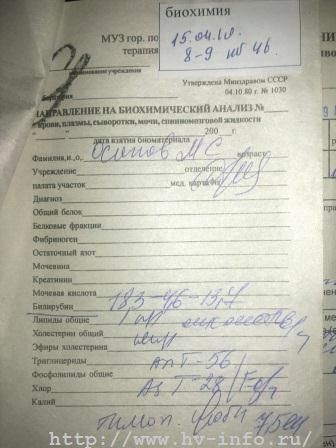 МУЗ гор. по
терапия
биохимия
15.04.10.
8-9 каб 46.
наименование учреждения
Утверждена Минздравом СССР
04.10.80 г. № 1030
НАПРАВЛЕНИЕ НА БИОХИМИЧЕСКИЙ АНАЛИЗ №
крови, плазмы, сыворотки, мочи, спинномозговой жидкости
200 г.
дата взятия биоматериала
Фамилия, и., о. Осипов М С возраст
Учреждение отделение
палата участок мед. карта №
Диагноз
Общий белок
Белковые фракции
Фибриноген
Остаточный азот
Мочевина
Креатинин
Мочевая кислота
Билирубин 18,3-4,6-13,7
Липиды общие
Холестерин общий
Эфиры холестерина
Триглицериды АлТ-56
Фосфолипиды общие
Хлор АсТ-28
Калий
тимол. проба 7,5 ед
http://www.hv-info.ru/